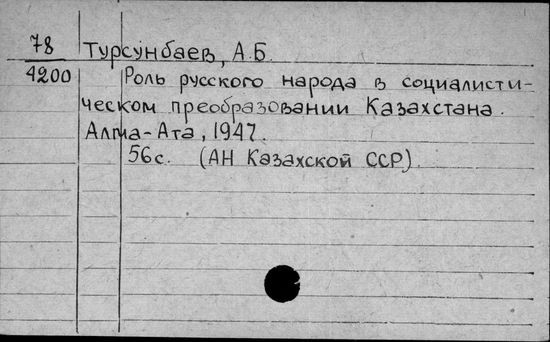 78 Турсунбаев, А.Б.
4200 Роль русского народа в социалисти-
ческом преобразовании Казахстана.
Алма-Ата, 1947.
56с. (АН Казахской ССР)